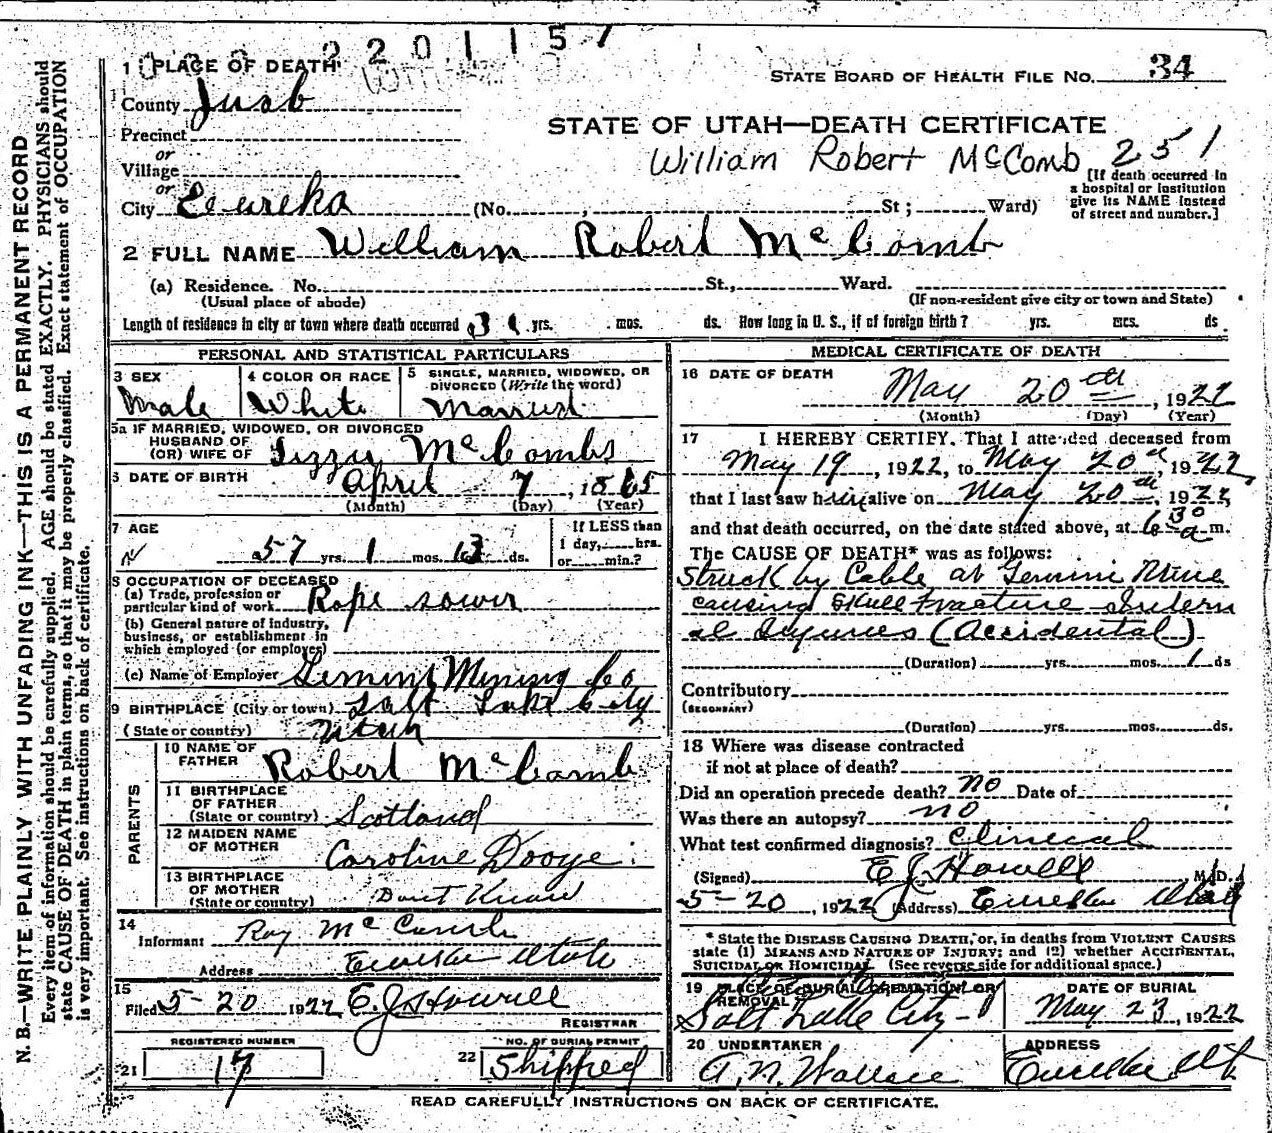 2201157
1 PLACE OF DEATH
STATE BOARD OF HEALTH FILE NO. 34
County Juab
STATE OF UTAH—DEATH CERTIFICATE
Precinct
William Robert McComb 251
or
Village
or
[If death occurred in
a hospital or institution
give its NAME instead
of street and number.]
City Eureka (No. ; St ; Ward)
2 FULL NAME William Robert McComb
(a) Residence. No. St., Ward.
(Usual place of abode) (If non-resident give city or town and State)
Length of residence in city or town where death occurred yrs. mos. ds. How long in U. S., if of foreign birth? yrs. mos. ds
PERSONAL AND STATISTICAL PARTICULARS
3 SEX Male
4 COLOR OR RACE White
5 SINGLE, MARRIED, WIDOWED, OR
DIVORCED (Write the word)
Married
5a IF MARRIED, WIDOWED, OR DIVORCED
HUSBAND OF
(OR) WIFE OF Lizzy McCombs
6 DATE OF BIRTH April 7, 1865
(Month) (Day) (Year)
7 AGE
57 yrs. 1 mos. 13 ds.
If LESS than
1 day, hrs.
or min.?
8 OCCUPATION OF DECEASED
(a) Trade, profession or
particular kind of work Rope
(b) General nature of industry,
business, or establishment in
which employed (or employer)
(c) Name of Employer Gemini Mining Co
9 BIRTHPLACE (City or town) Salt Lake City
(State or country) Utah
PARENTS
10 NAME OF
FATHER Robert McComb
11 BIRTHPLACE
OF FATHER
(State or country) Scotland
12 MAIDEN NAME
OF MOTHER Caroline Dooye
13 BIRTHPLACE
OF MOTHER
(State or country) Dont Know
14
Informant Roy McComb
Address Eureka Utah
15
Filed 5-20 1922 E. J. Howell
REGISTRAR
REGISTERED NUMBER
21 17
NO. OF BURIAL PERMIT
22 Shipped
MEDICAL CERTIFICATE OF DEATH
16 DATE OF DEATH
May 20th, 1922
(Month) (Day) (Year)
17 I HEREBY CERTIFY, That I attended deceased from
May 19, 1922, to May 20th, 1922,
that I last saw him alive on May 20th, 1922,
and that death occurred, on the date stated above, at 6 30 a m.
The CAUSE OF DEATH* was as follows:
Struck by Cable at Gemini Mine
causing skull fracture Intern
al Injuries (Accidental)
(Duration) yrs. mos. 1 ds
Contributory
(SECONDARY)
(Duration) yrs. mos. ds.
18 Where was disease contracted
if not at place of death?
Did an operation precede death? no Date of
Was there an autopsy? no
What test confirmed diagnosis? Clinical
(Signed) E J Howell, M. D.
5-20, 1922 (Address) Eureka Utah
* State the DISEASE CAUSING DEATH, or, in deaths from VIOLENT CAUSES
state (1) MEANS AND NATURE OF INJURY; and (2) whether ACCIDENTAL,
SUICIDAL or HOMICIDAL (See reverse side for additional space.)
19 PLACE OF BURIAL, CREMATION, OR
REMOVAL
Salt Lake City
DATE OF BURIAL
May 23, 1922
20 UNDERTAKER
A. N. Wallace
ADDRESS
Eureka Ut
READ CAREFULLY INSTRUCTIONS ON BACK OF CERTIFICATE.
N. B.—WRITE PLAINLY WITH UNFADING INK—THIS IS A PERMANENT RECORD
Every item of information should be carefully supplied. AGE should be stated EXACTLY. PHYSICIANS should
state CAUSE OF DEATH in plain terms, so that it may be properly classified. Exact statement of OCCUPATION
is very important. See instructions on back of certificate.